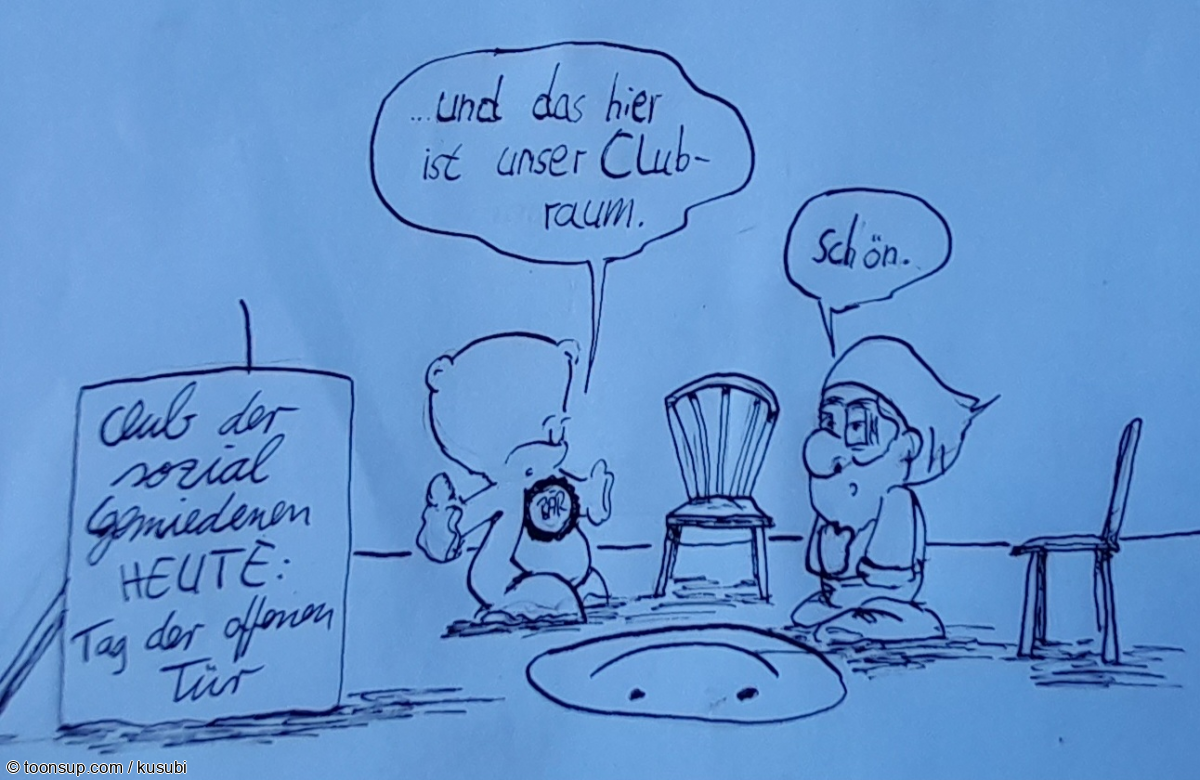 ...und das hier
ist unser Club-
raum.
schön.
Club der
sozial
Gemiedenen
HEUTE:
Tag der offenen
Tür
BÄR
© toonsup.com / kusubi